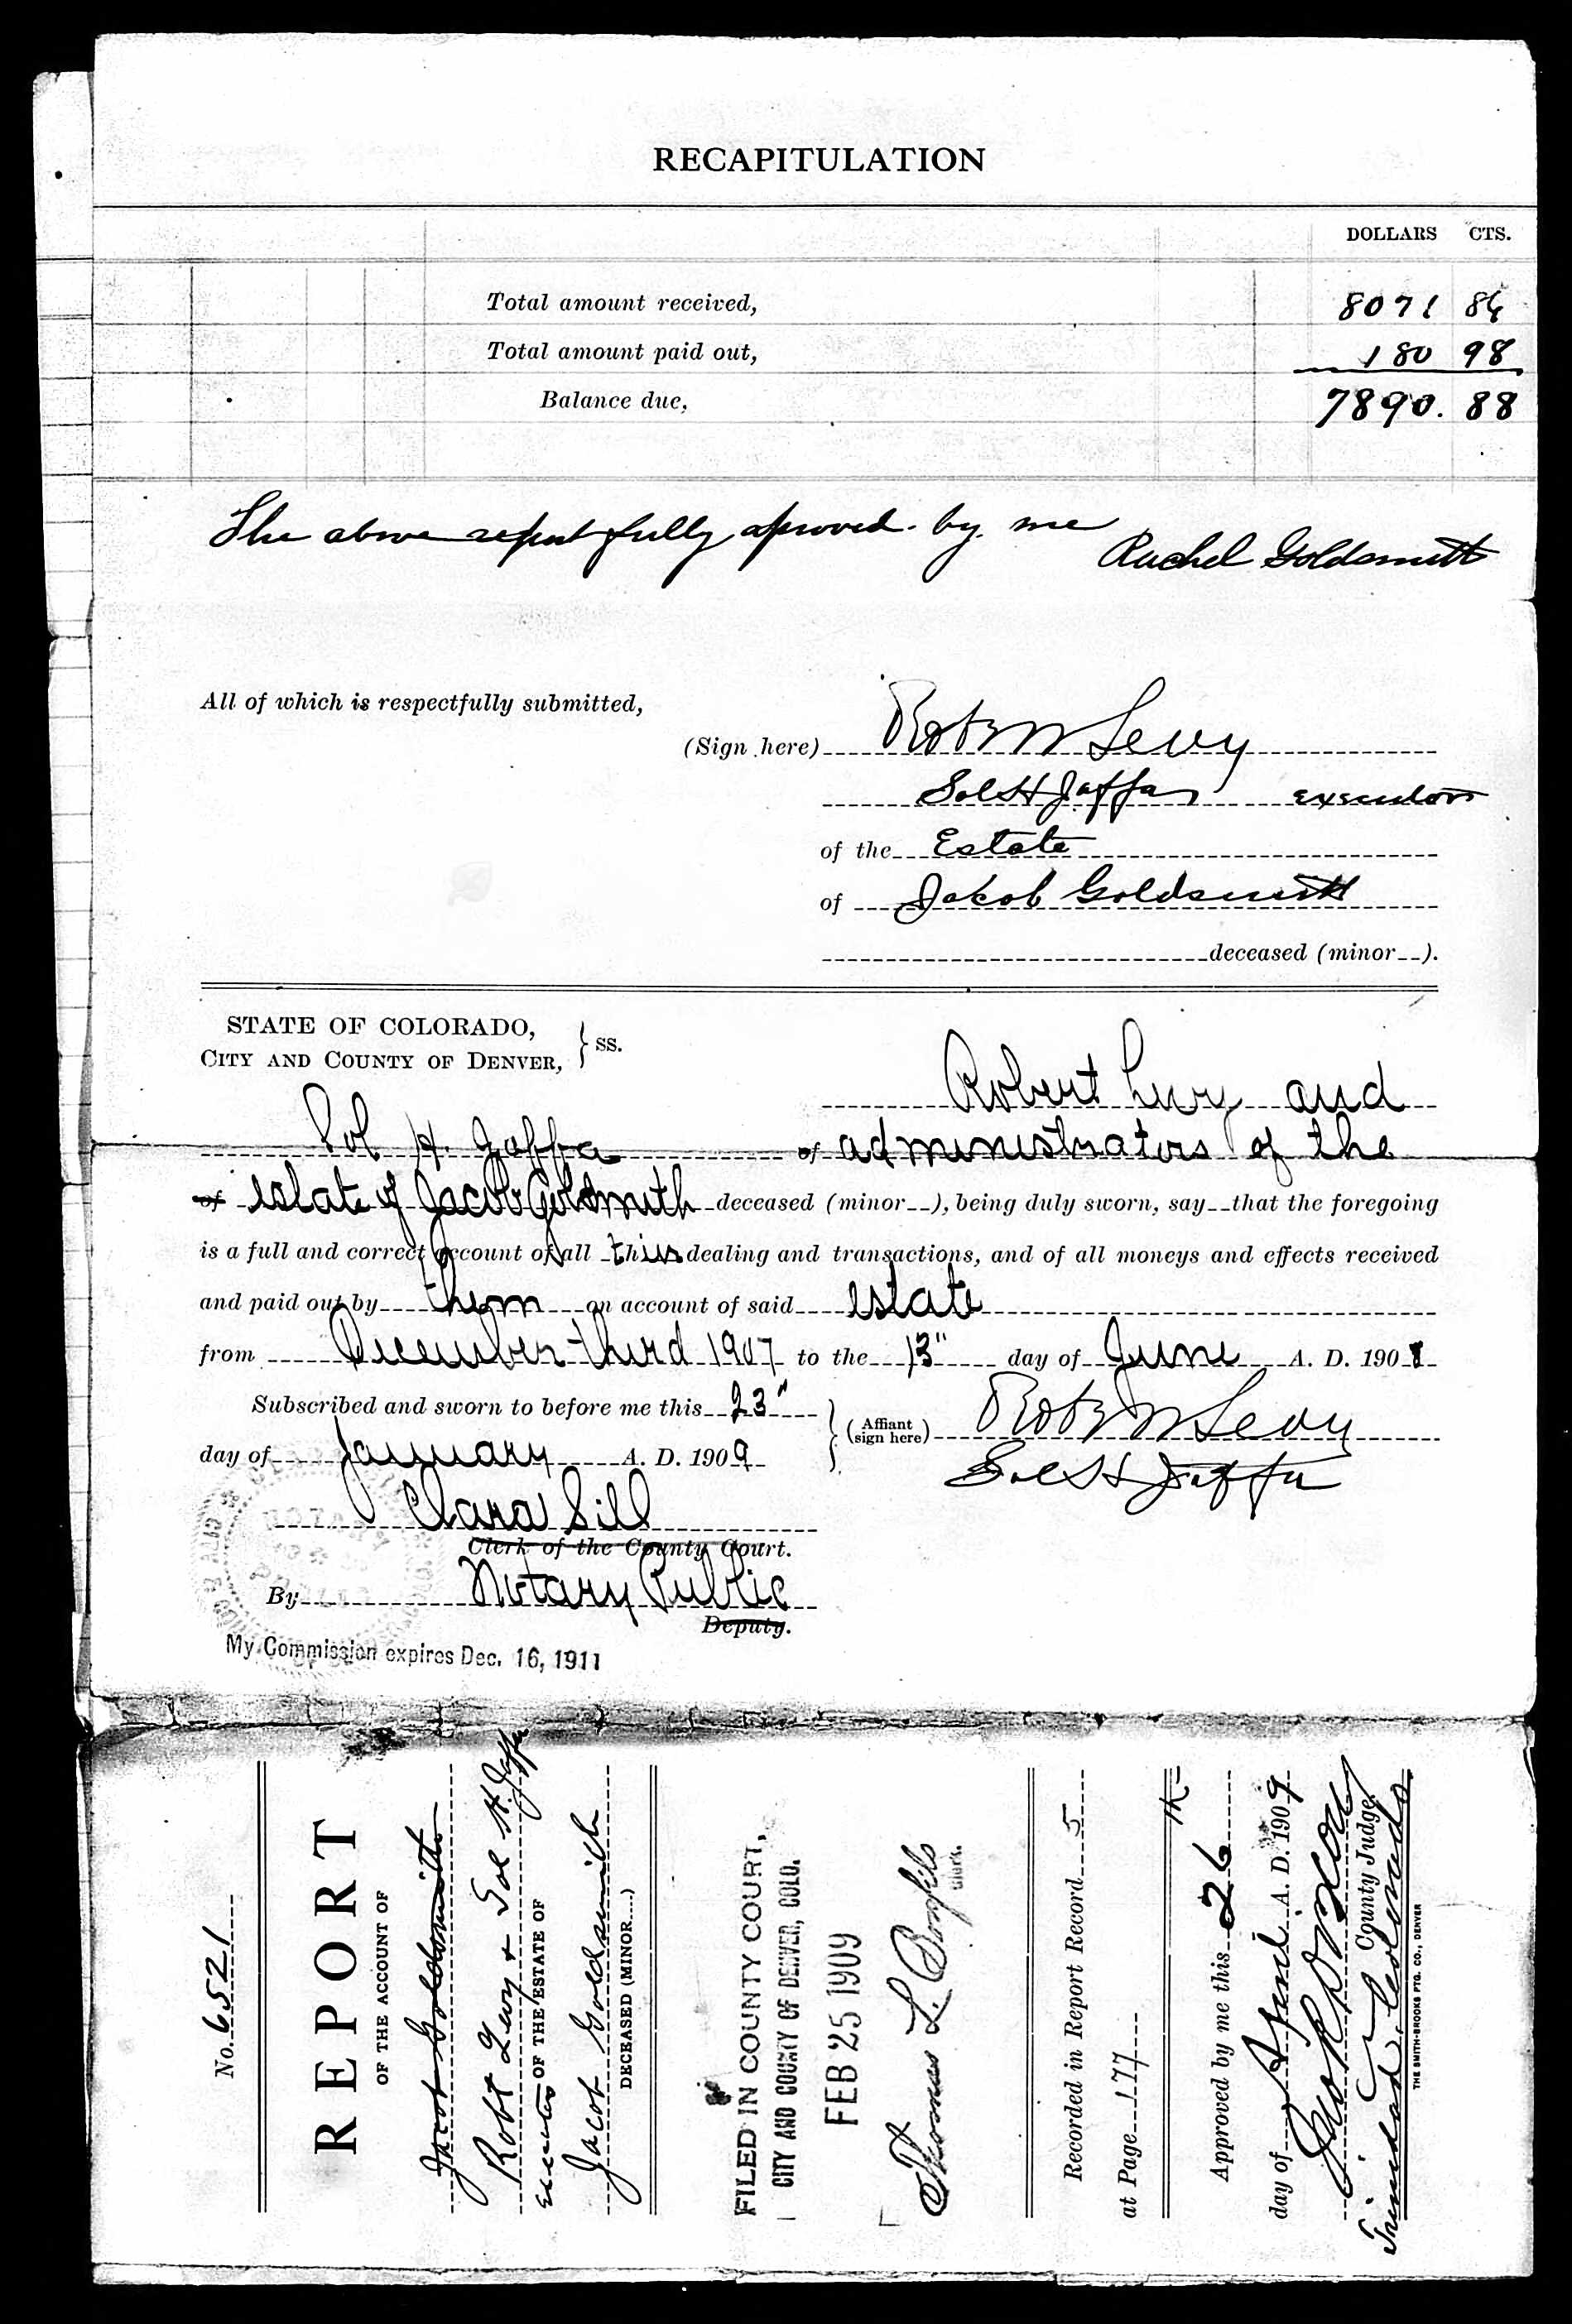 RECAPITULATION
DOLLARS CTS.
Total amount received, 8071 86
Total amount paid out, 180 98
Balance due, 7890. 88
The above report fully aproved. by. me
Rachel Goldsmith
All of which is respectfully submitted,
(Sign here) Robt M Levy
Sol H Jaffa executors
of the Estate
of Jakob Goldsmith
deceased (minor ).
STATE OF COLORADO,
CITY AND COUNTY OF DENVER, } ss.
Robert Levy and
Sol H. Jaffa of administrators of the
of estate of Jacob Goldsmith deceased (minor ), being duly sworn, say that the foregoing
is a full and correct account of all their dealing and transactions, and of all moneys and effects received
and paid out by them on account of said estate
from December third 1907 to the 13" day of June A. D. 1908
Subscribed and sworn to before me this 23"
day of January A. D. 1909
(Affiant sign here) Robt M Levy
Sol H Jaffa
Clara Sill
Clerk of the County Court.
By Notary Public
Deputy.
My Commission expires Dec. 16, 1911
No. 6521
REPORT
OF THE ACCOUNT OF
Jacob Goldsmith
Robt Levy + Sol H. Jaffa
Executors OF THE ESTATE OF
Jacob Goldsmith
DECEASED (MINOR....)
FILED IN COUNTY COURT,
CITY AND COUNTY OF DENVER, COLO.
FEB 25 1909
Thomas L. Bonfils
Clerk.
Recorded in Report Record 5
at Page 177
Approved by me this 26
day of April A. D. 1909
County Judge.
Trinidad, Colorado.
THE SMITH-BROOKS PTG. CO., DENVER